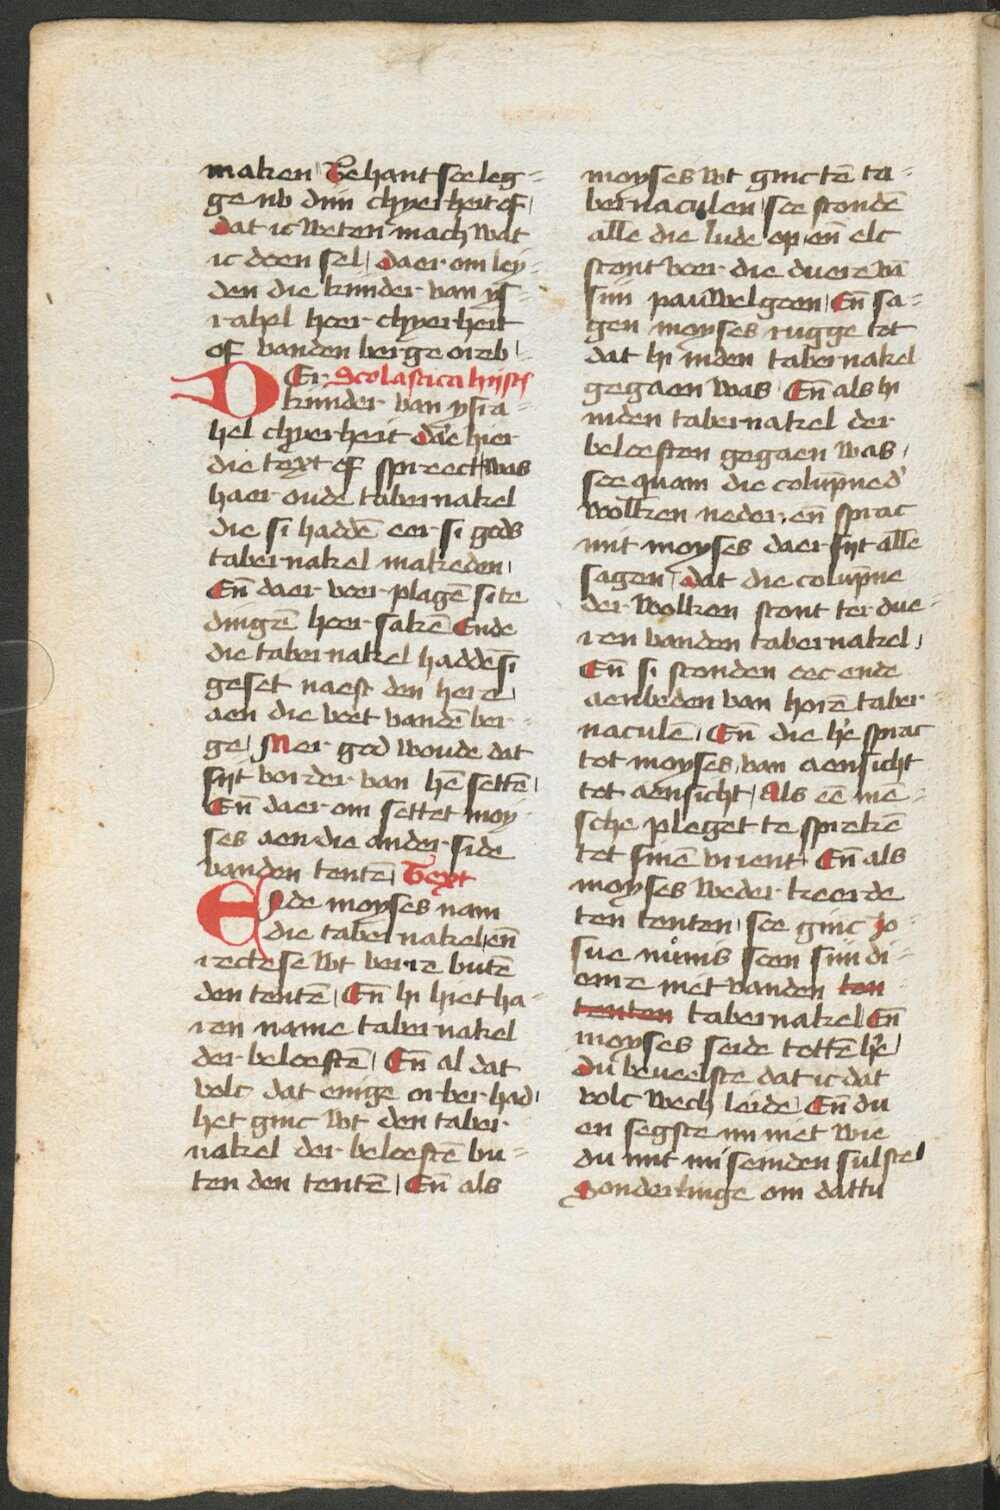 maken Tehant soe leg-
ge nv dijn chyerheit of
Dat ic weten mach wat
ic doen sel Daer om ley-
den die kijnder van ys-
rahel hoer chyerheit
of vanden berge oreb
DEr Scolastica histori
kijnder van ysra-
hel chyerheit dae hier
die text of spreect was
haer oude tabernakel
die si haddē eer si gods
tabernakel makeden
Eñ daer voer plagē si te
dingē hoer sakē Ende
die tabernakel haddē si
geset naest den here
aen die voet vandē ber-
ge Mer god woude dat
sijt vorder van hē settē
Eñ daer om settet moy-
ses aen die ander side
vanden tentē Text
Ende moyses nam
die tabernakel eñ
rechtese wt verre butē
den tentē Eñ hi hiet ha-
ren name tabernakel
der beloeftē Eñ al dat
volc dat enige orber had
het ginc wt den taber-
nakel der beloeftē bu-
ten den tentē Eñ als
moyses wt ginc tē ta-
bernaculen soe stondē
alle die lude op eñ elc
stont voer die duere vā
sijn pauwelgoen Eñ sa-
gen moyses rugge tot
dat hi inden tabernakel
gegaen was Eñ als hi
inden tabernakel der
beloeften gegaen was
soe quam die colūpne d'
wolken neder eñ sprac
mit moyses daer sijt alle
sagen dat die colūpne
der wolken stont ter due-
ren vanden tabernakel
Eñ si stonden oec ende
aenbeden van horē taber-
naculē Eñ die he sprac
tot moyses van aensicht
tot aensicht Als eē men-
sche pleget te sprekē
tot sinē vrient Eñ als
moyses weder keerde
ten tenten soe ginc Jo-
sue numis soen sijn di-
enre niet vanden ten
tenten tabernakel Eñ
moyses seide tottē he
Du beveelste dat ic dat
volc wech leide Eñ du
en segste mi niet wie
du mit mi seinden sulste
Sonderlinge om dattu